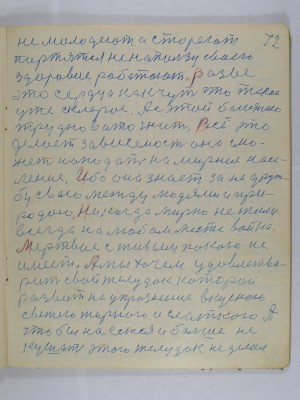 не молодеют а стареют 72
портятся не на пользу своего
здоровие работают. Разве
это сердца как чуть что такое
уже склероз. А с этой болезнью
трудно ватожнит. Всё это
делает зависемость она смо-
жет нападат на мирное насе-
ление. Ибо она знает за не друж-
бу свою между людями и при-
родою. Никогда мирно не жили
всегда на любом месте война.
Мертвые с тивым покою не
имеет. А мы хочем удовлетво-
рит свой желудок которой
развит на употребление вкусного
свежего жирного и сладкого А
чтобы наестся и больше не
кушать этого желудок не делал